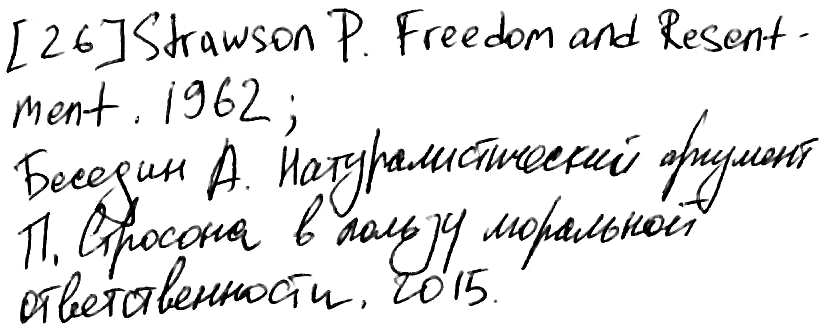 [26] Strawson P. Freedom and Resent-
ment. 1962;
Беседин А. Натуралистический аргумент
П. Стросона в пользу моральной
ответственности. 2015.